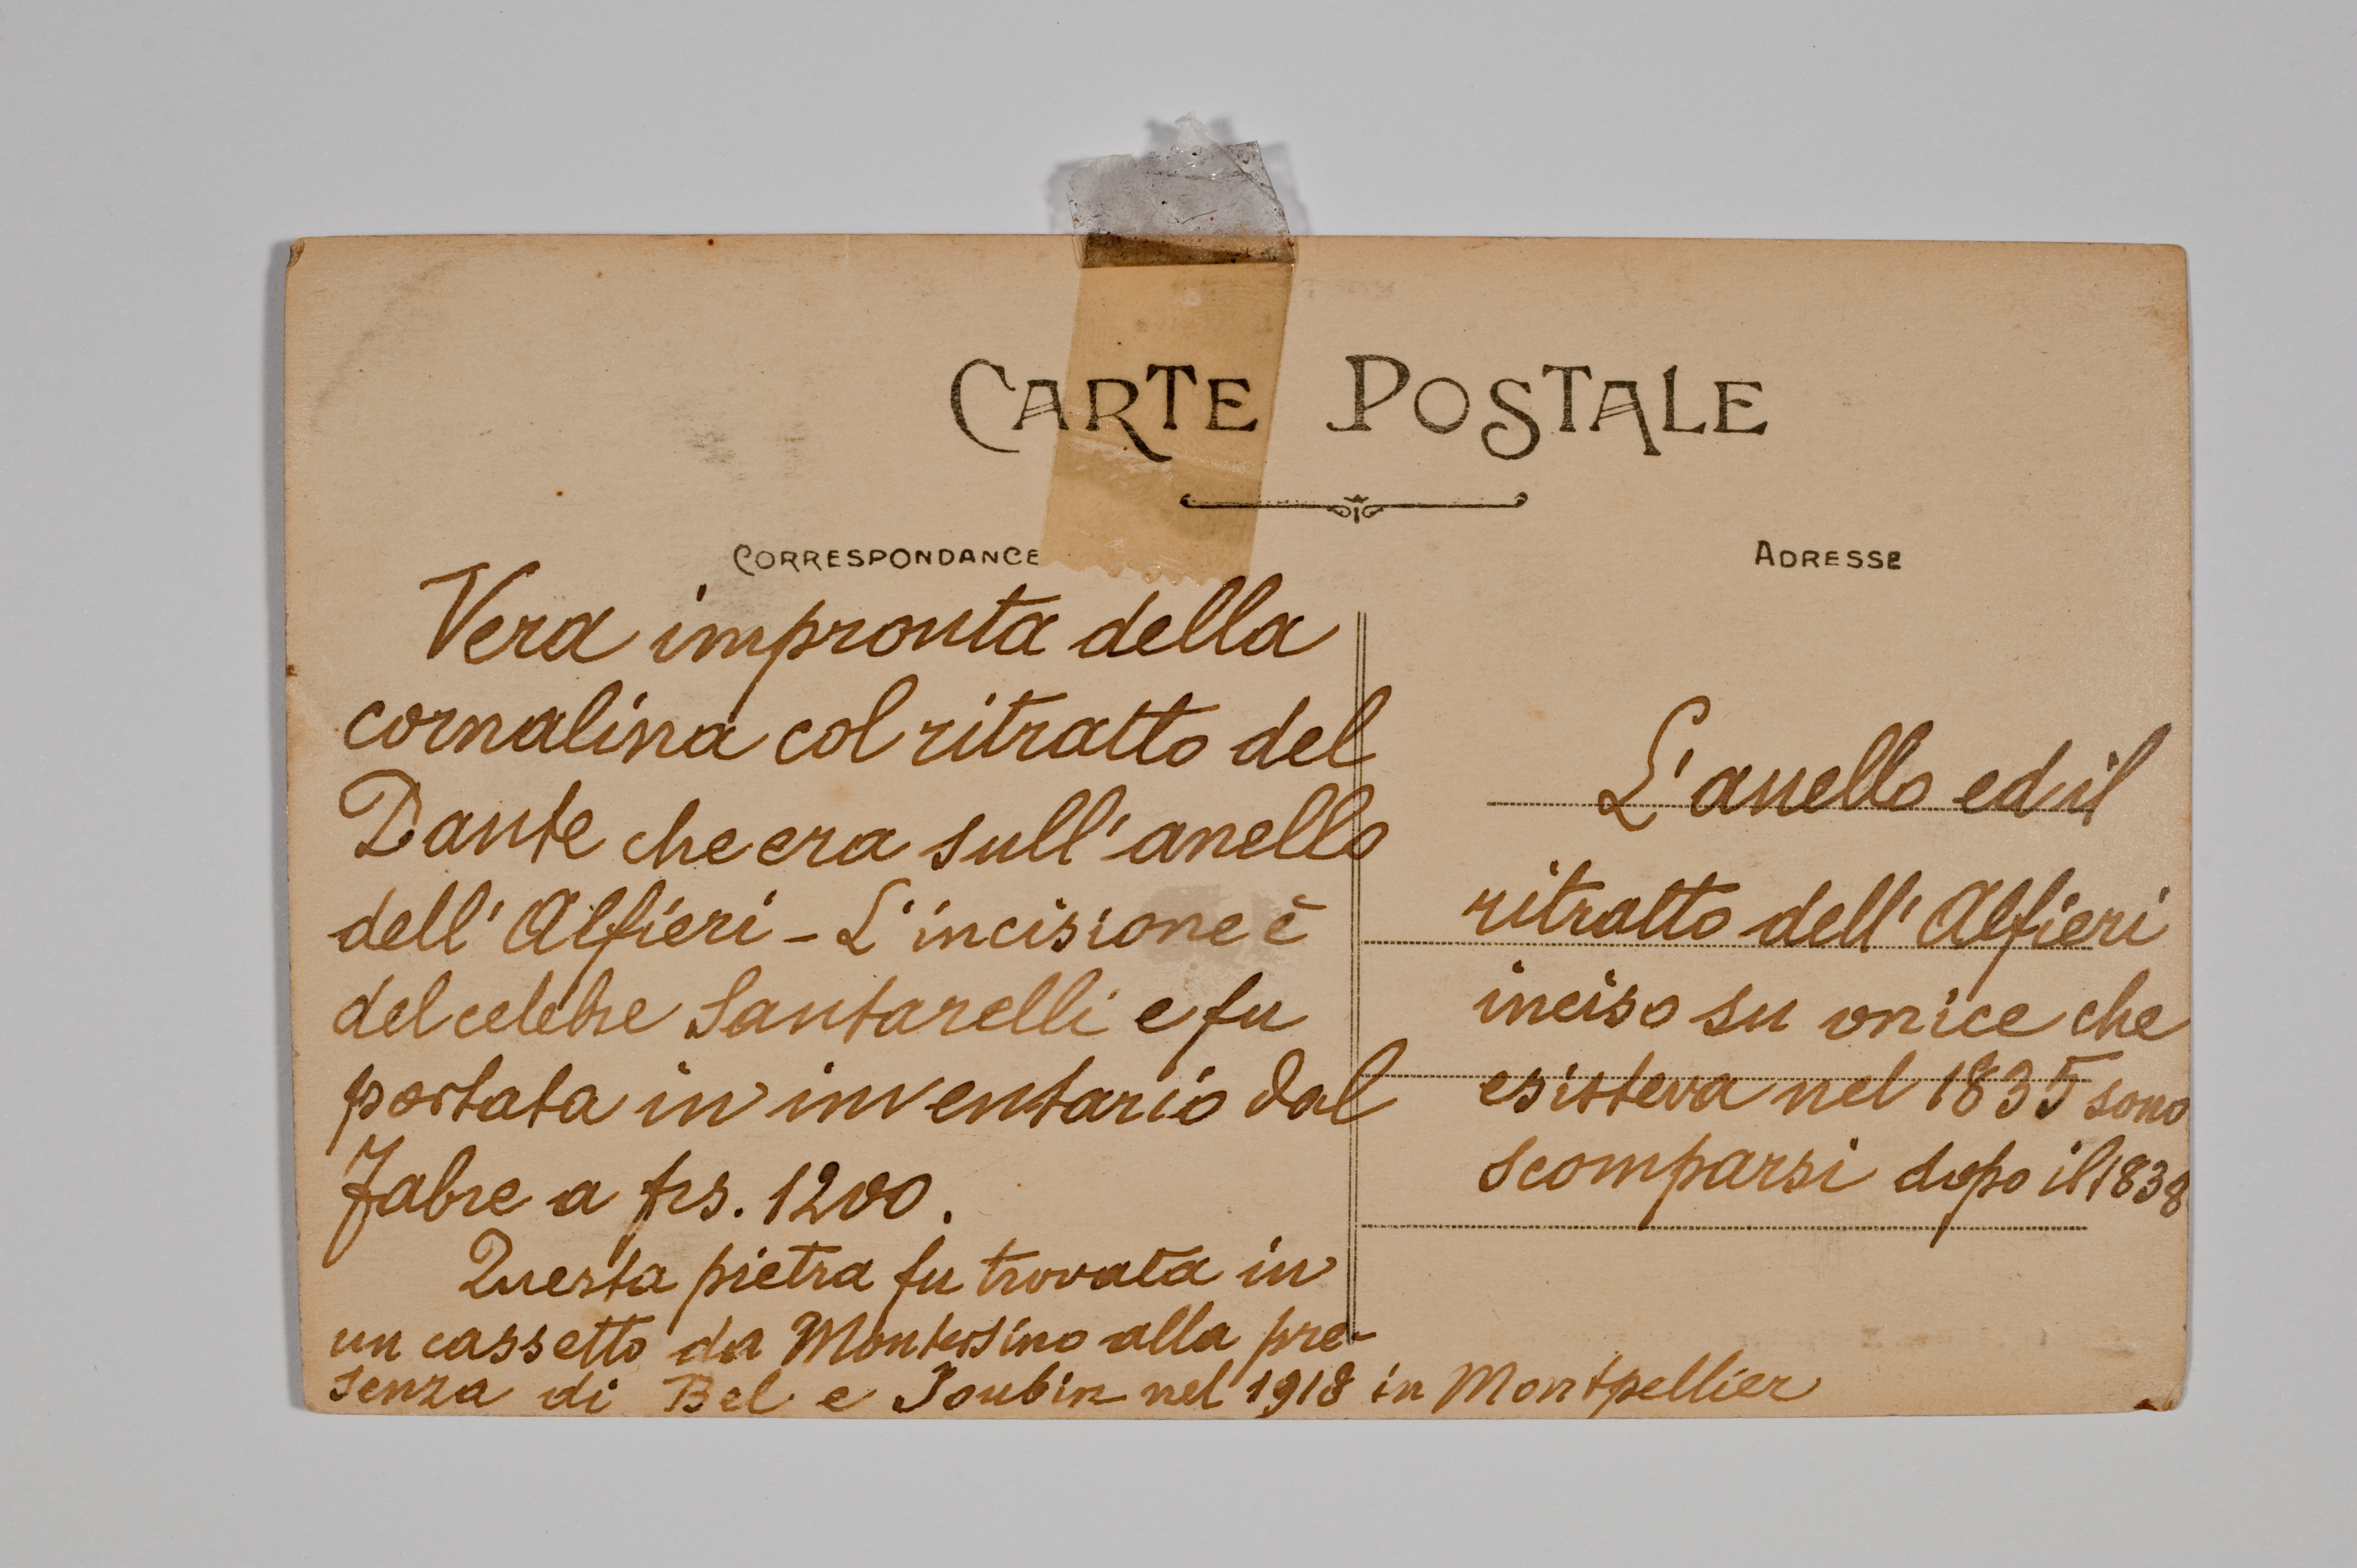 CARTE POSTALE
CORRESPONDANCE
Vera impronta della
cornalina col ritratto del
Dante che era sull'anello
dell'Alfieri – L'incisione è
del celebre Santarelli e fu
portata in inventario dal
Fabre a frs. 1200.
Questa pietra fu trovata in
un cassetto da Montesino alla pre-
senza di Bel e Joubin nel 1918 in Montpellier
ADRESSE
L'anello ed il
ritratto dell'Alfieri
inciso su onice che
esisteva nel 1835 sono
scomparsi dopo il 1838